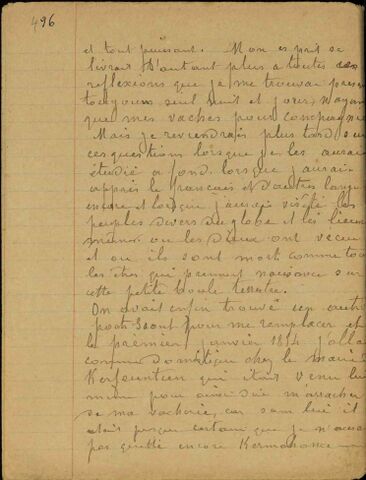 496
et tout puissant. Mon esprit se
livrait d'autant plus a toutes ces
reflexions que je me trouvai presque
toujours seul nuit et jour, n'ayant
que mes vaches pour compagnie
Mais je reviendrais plus tard sur
ces questions lorsque je les aurai
étudié a fond, lorsque j'aurai
appris le francais et d'autres langues
encore et lorsque j'aurais visité les
peuples divers du globe et les lieux
mêmes ou les Dieux ont vecu
et ou ils sont mort comme tous
les êtres qui prennent naissance sur
cette petite boule terrestre.
On avait enfin trouvé un autre
pour me remplacer et
le premier janvier 1854 j'allai
comme domestique chez le maire de
Kerfeunteun qui était venu lui
même pour ainsi dire m'arracher
de ma vacherie, car sans lui il
etait presque certain que je n'aurai
pas quitté encore Kermahonec